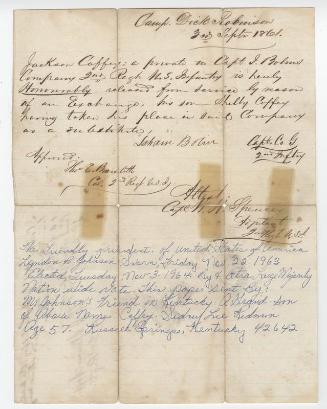 Camp Dick Robinson
3rd Septr 1861.
Jackson Coffey a private in Capt I. Bobers
Company 2nd Regt U.S. Infantry is hereby
Honourably released from service by reason
of an Exchange, his son Shelly Coffey
having taken his place in said Company
as a substitute.
Isham Bober
Capt. Co. G
2nd Infty
Approved:
Tho. E. Bramlette
Col. 2nd Regt
Attest:
Capt. Spencer
2nd Regt
The Friendly president of United States of America
Lyndon B. Johnson Sworn, Friday Nov 22 1963
Elected, Tuesday Nov-3-1964 By a Large Majority
Nation wide Vote This paper Sent By:
Mr Johnson's Friend in Kentucky A Grand son
of Coffey. Sidney Lee
Age 57. Russell Springs, Kentucky 42642